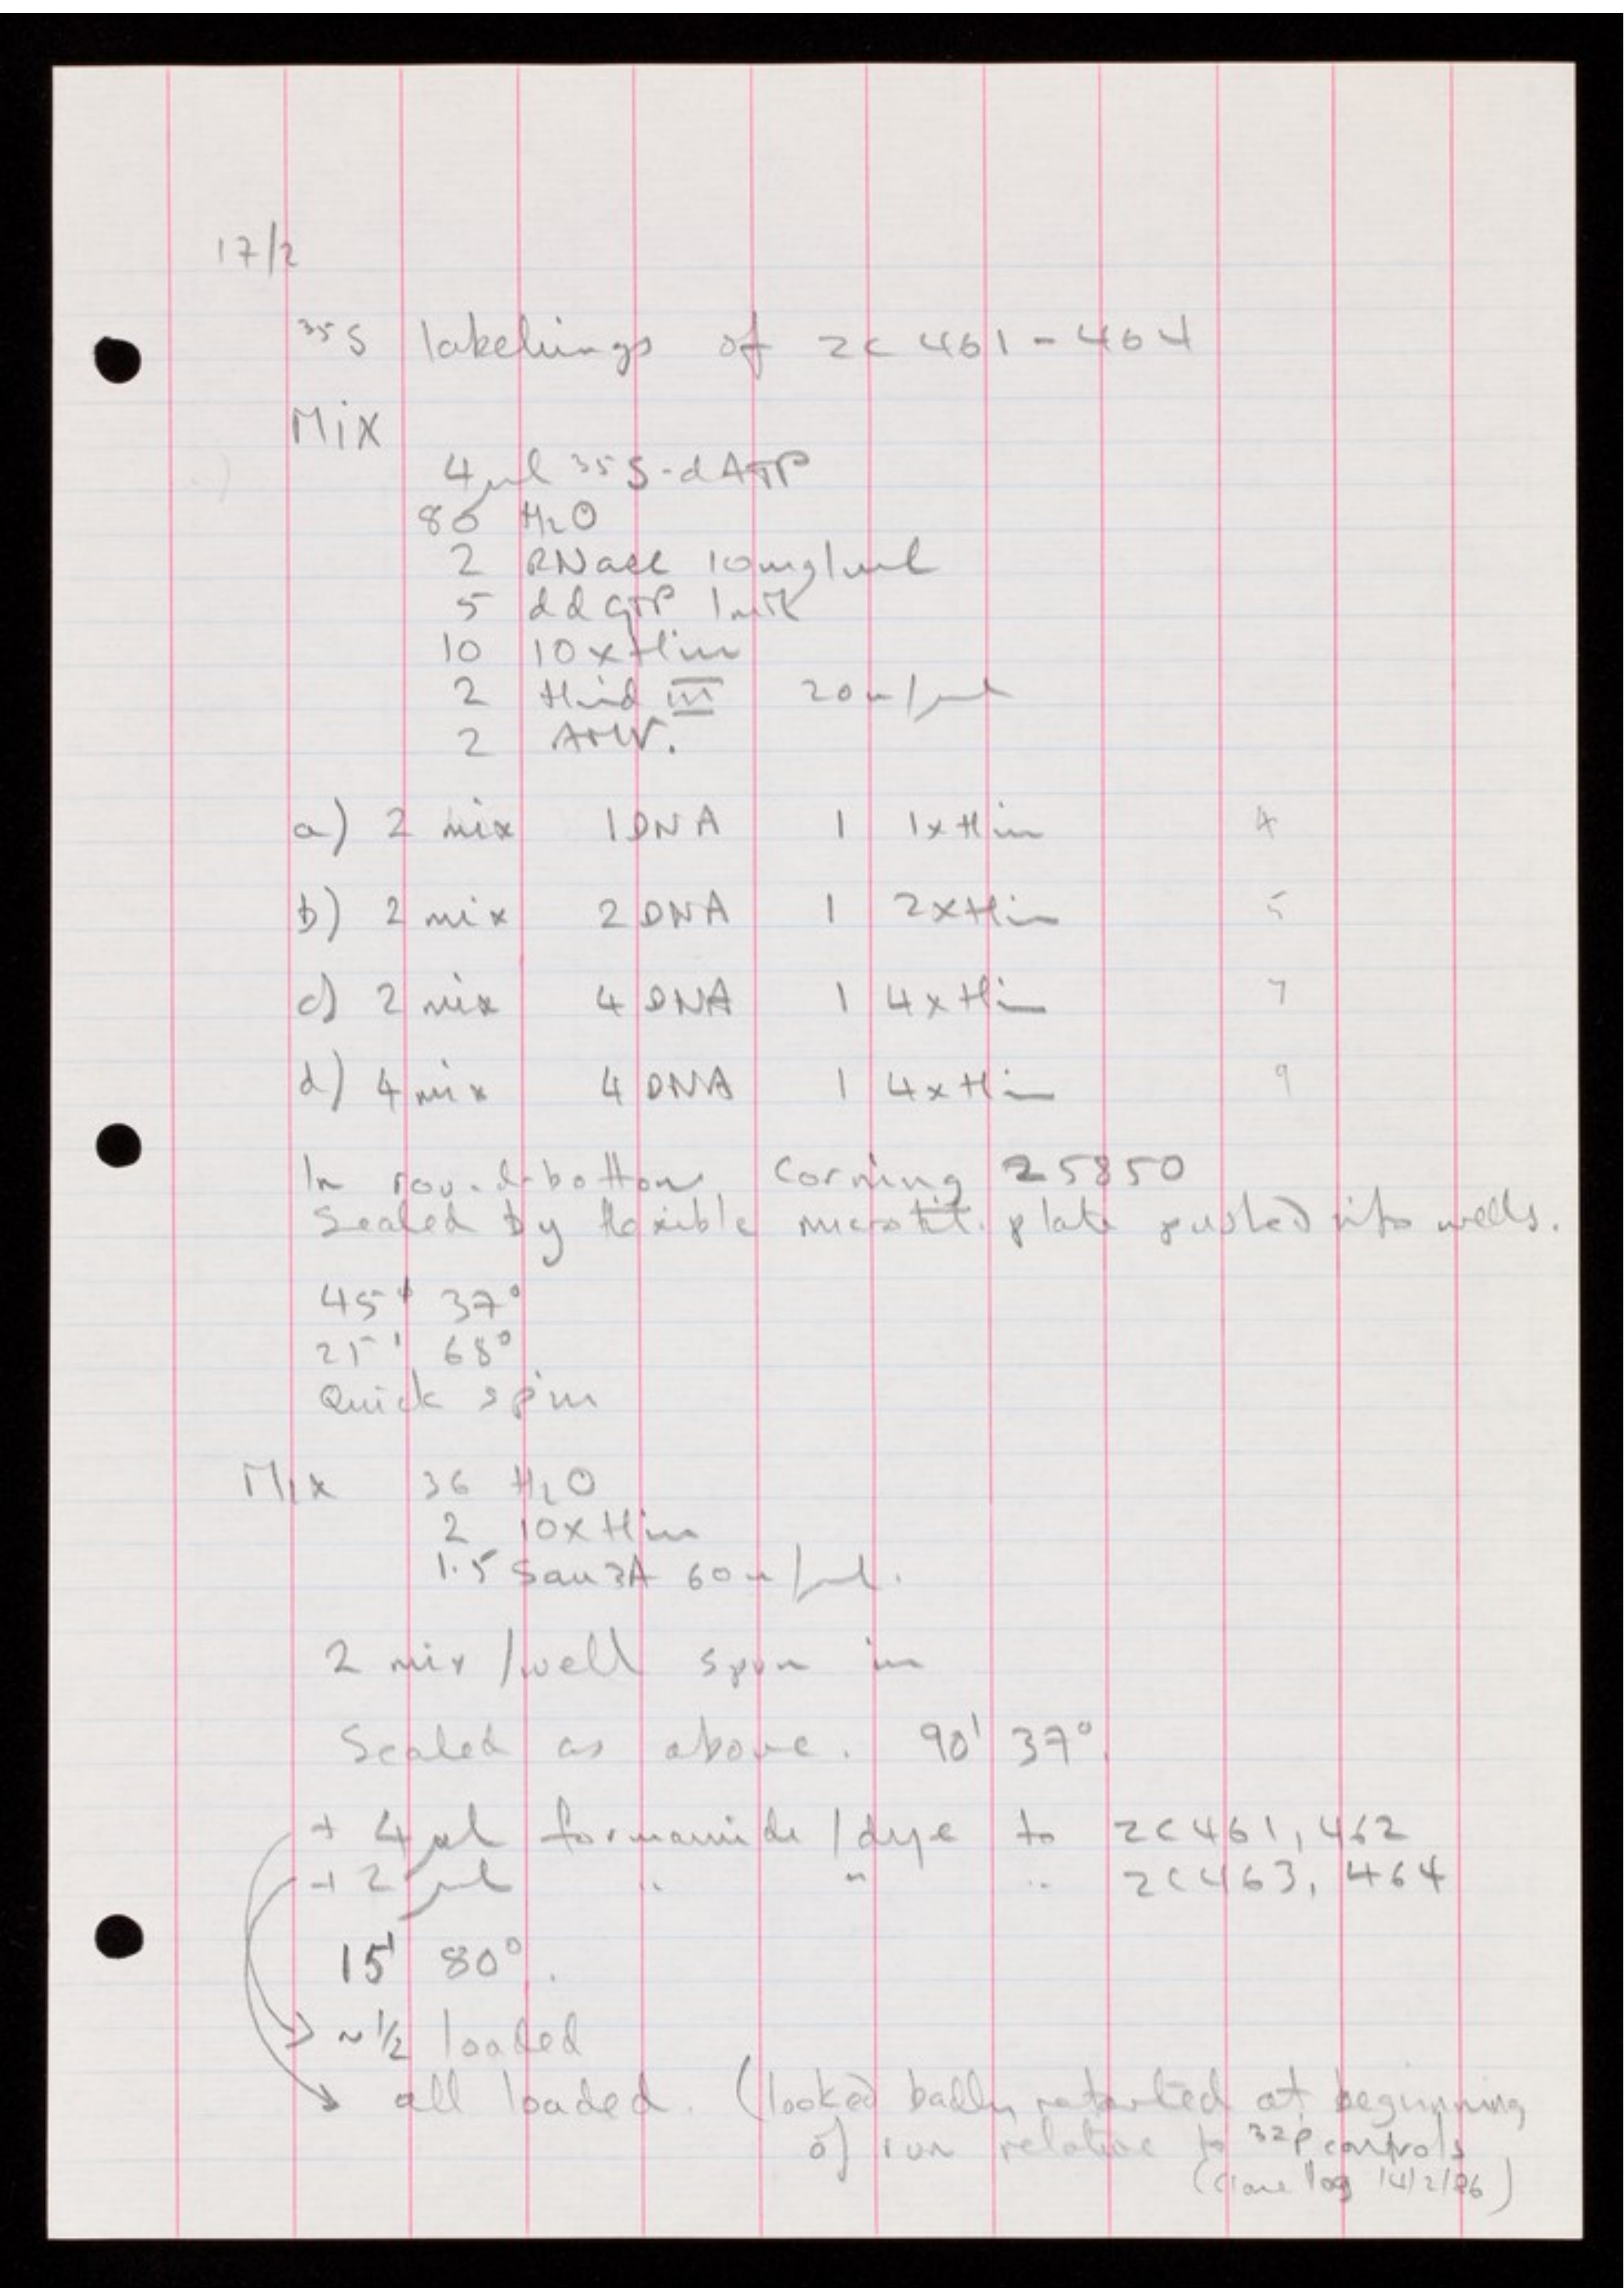 17/2
35S labelings of ZC 461-464
Mix
4 μl 35S-dATP
80 H2O
2 RNase 10mg/ml
5 ddGTP 1mM
10 10xHin
2 Hind III 20u/μl
2 AMV.
a) 2 mix 1 DNA 1 1xHin 4
b) 2 mix 2 DNA 1 2xHin 5
c) 2 mix 4 DNA 1 4xHin 7
d) 4 mix 4 DNA 1 4xHin 9
In round-bottom Corning 25850
Sealed by flexible microtit. plate pushed into wells.
45' 37°
25' 68°
Quick spin
Mix 36 H2O
2 10xHin
1.5 Sau3A 60u/μl.
2 mix/well spun in
Sealed as above. 90' 37°
+ 4μl formamide/dye to ZC461,462
+ 2μl " " " ZC463, 464
15' 80°.
~1/2 loaded
all loaded. (looked badly retarded at beginning
of run relative to 32P controls
(clone log 14/2/86)